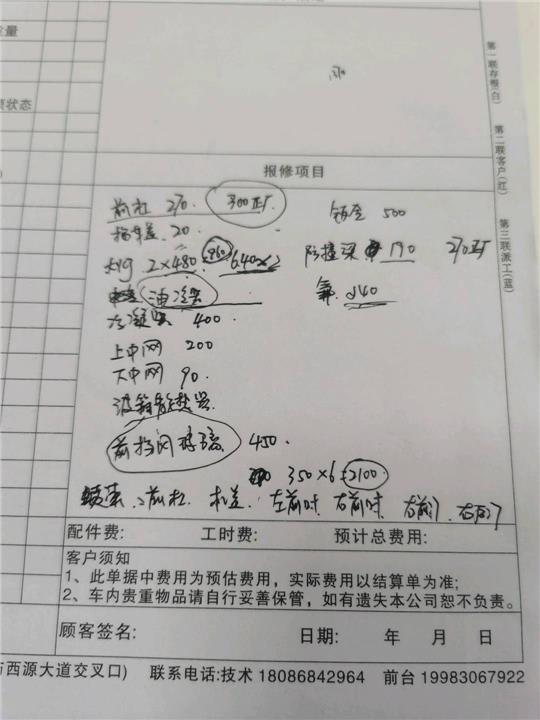 重量
状态
第一联存根(白)
第二联客户(红)
第三联派工(蓝)
报修项目
前杠 270. 300正厂
钣金 500
拖车盖. 20.
大灯 2×480. 960 640×2
防撞梁 170 270正厂
油冷器
氟. 140
冷凝器 400
上中网 200
下中网 90.
波箱散热器
前挡风玻璃 450.
350×6=2100
喷漆. 前杠. 机盖. 左前叶 右前叶 右前门. 右后门
配件费: 工时费: 预计总费用:
客户须知
1、此单据中费用为预估费用，实际费用以结算单为准;
2、车内贵重物品请自行妥善保管，如有遗失本公司恕不负责。
顾客签名: 日期: 年 月 日
与西源大道交叉口) 联系电话:技术 18086842964 前台 19983067922